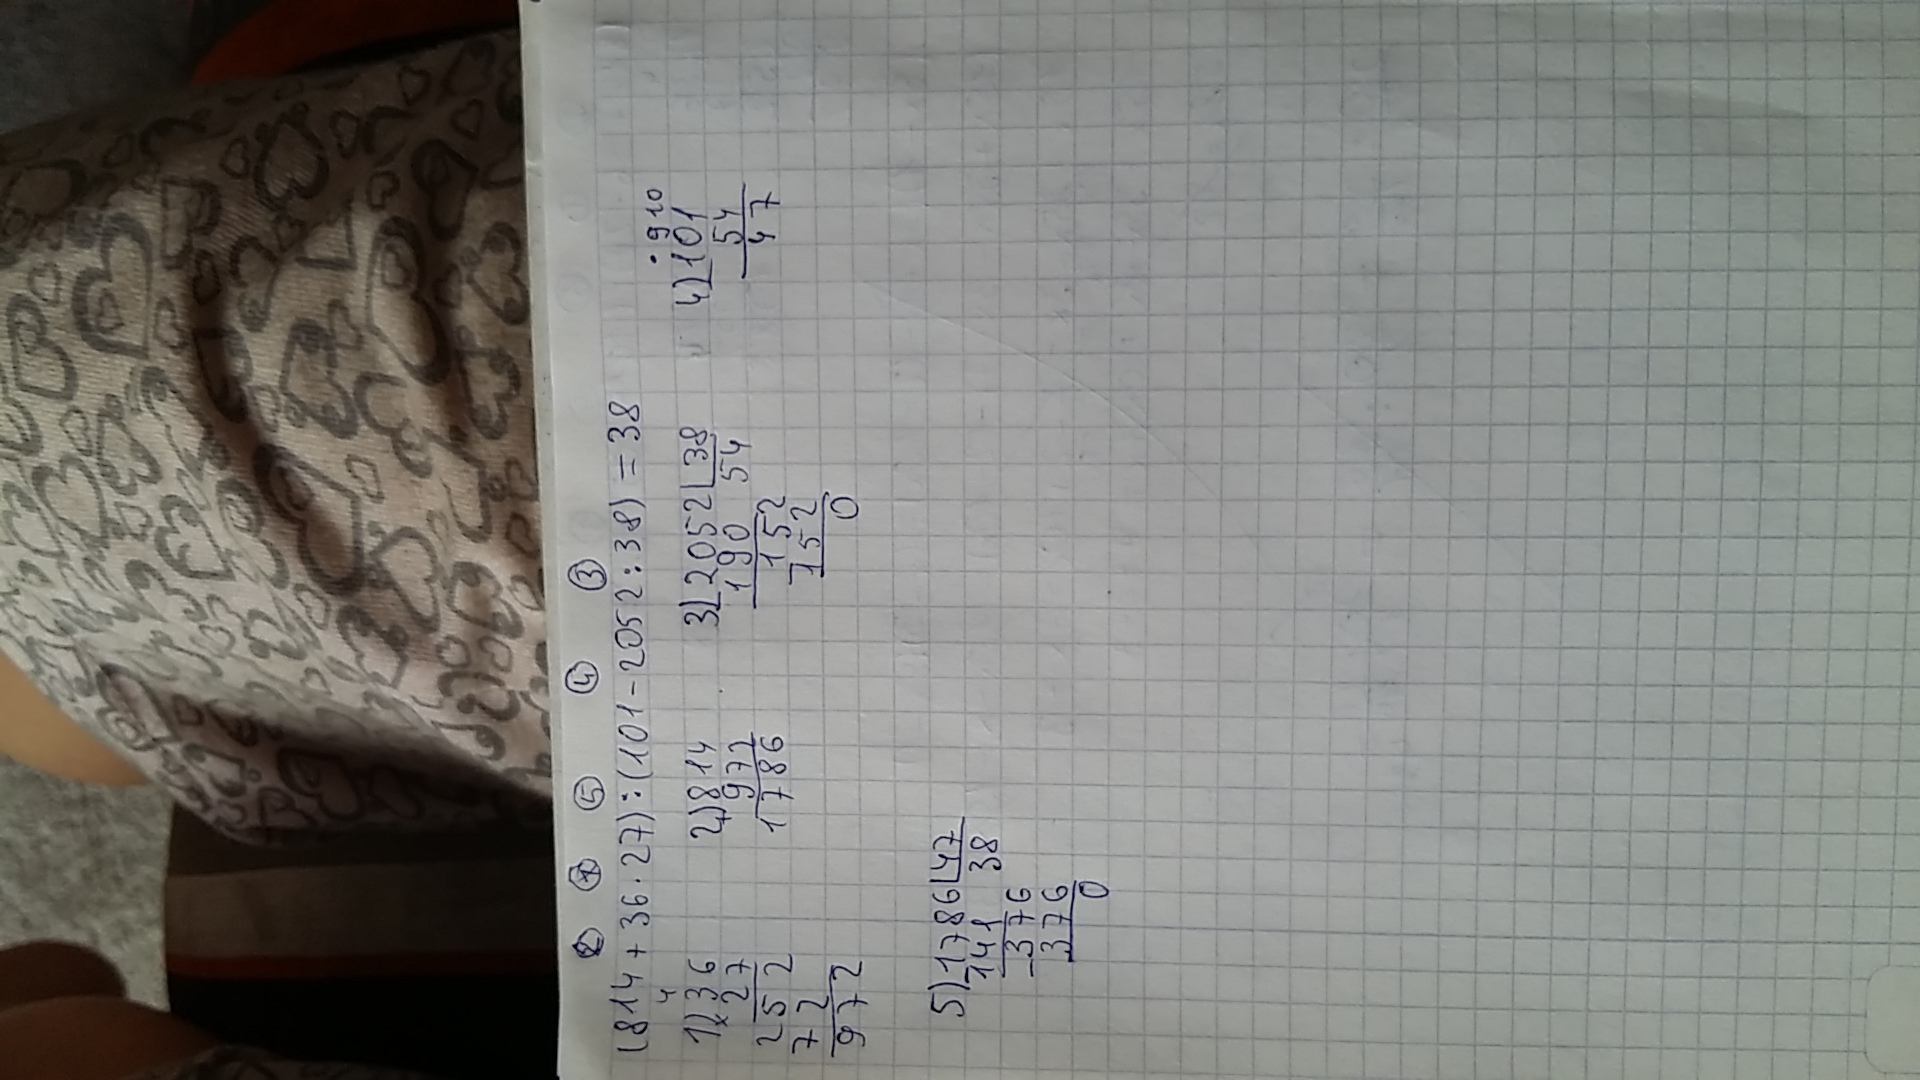 ② ① ⑤ ④ ③
(814 + 36 · 27) : (101 - 2052 : 38) = 38
4
1) × 36
27
252
72
972
2) 814
972
1786
3) 2052 | 38
190 54
152
152
0
• 9 10
4) 101
54
47
5) 1786 | 47
141 38
- 376
376
0